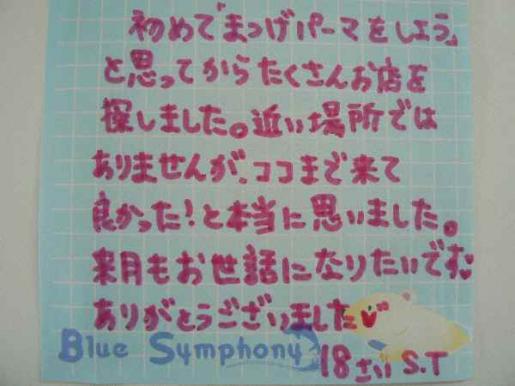 初めて「まつげパーマをしよう」
と思ってからたくさんお店を
探しました。近い場所では
ありませんが、ココまで来て
良かった!と本当に思いました。
来月もお世話になりたいです♥
ありがとうございました♥
Blue Symphony 18さい S.T